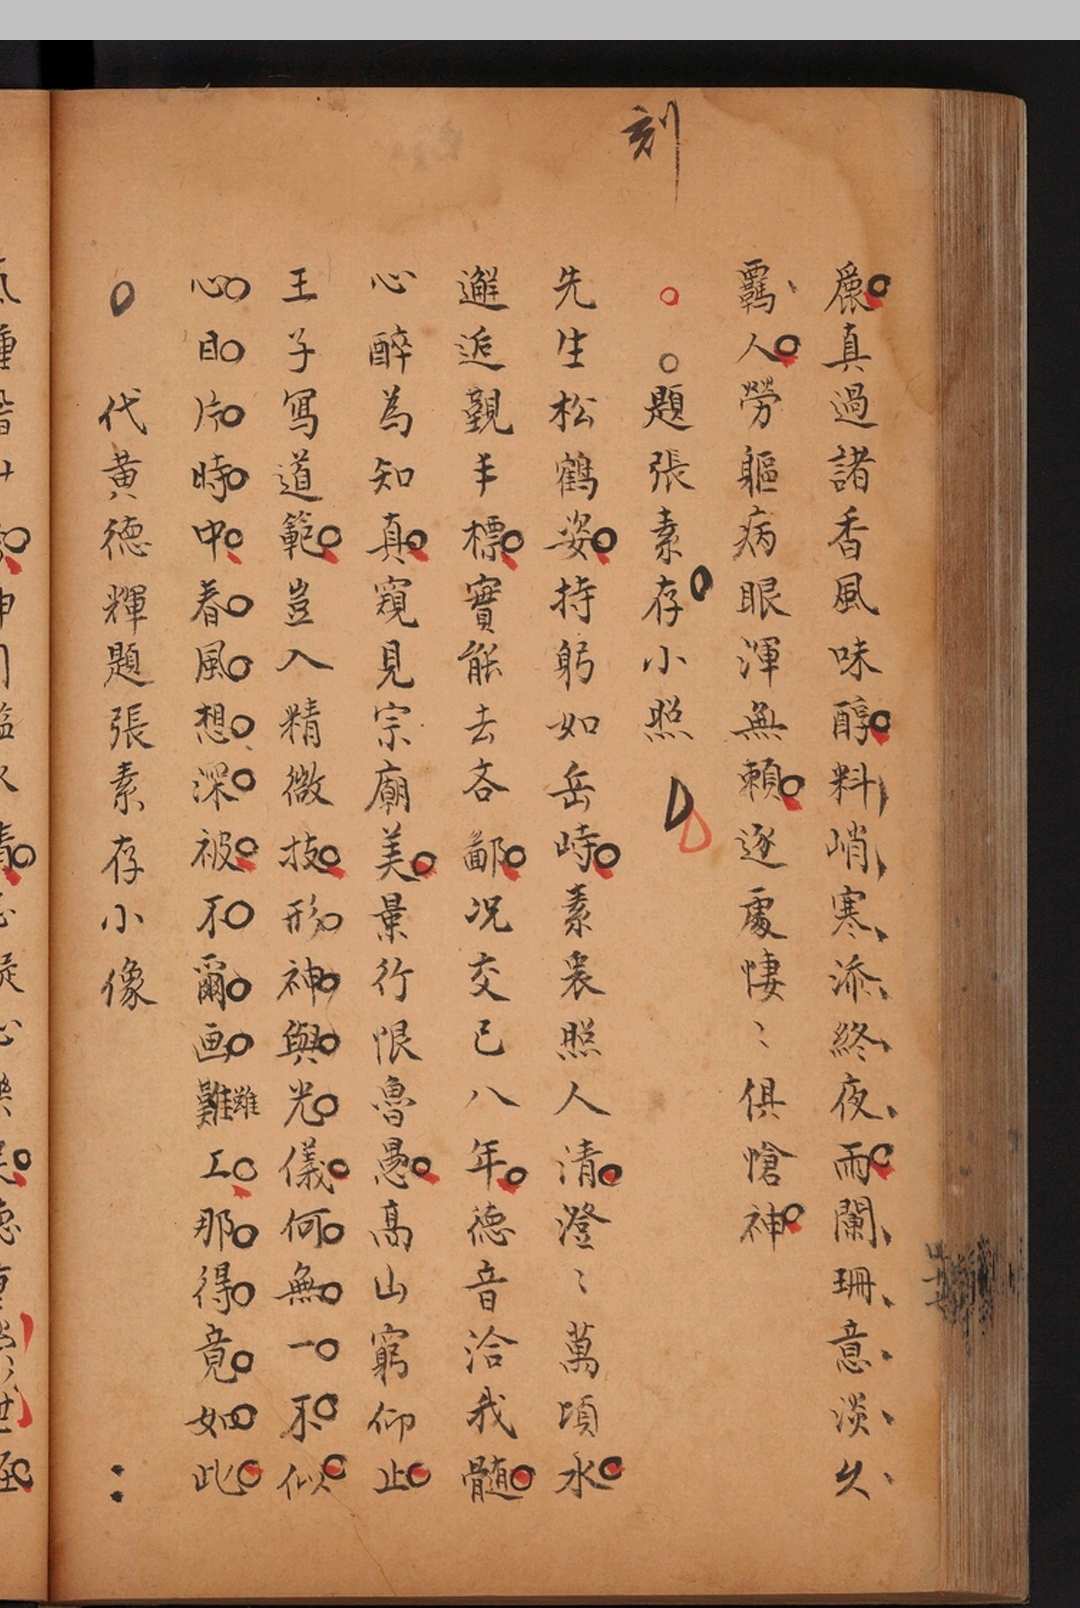 刻
麤真過諸香風味醇料峭寒添終夜雨闌珊意淡久
羈人勞軀病眼渾無賴逐處悽〻俱愴神
題張素存小照
先生松鶴姿持躬如岳峙素裳照人清澄〻萬頃水
邂逅觀丰標實能去吝鄙況交已八年德音洽我髓
心醉為知真窺見宗廟美景行恨魯愚高山窮仰止
王子寫道範豈入精微技形神與光儀何無一不似
心目片時中春風想深被不爾画難雖工那得竟如此
代黃德輝題張素存小像